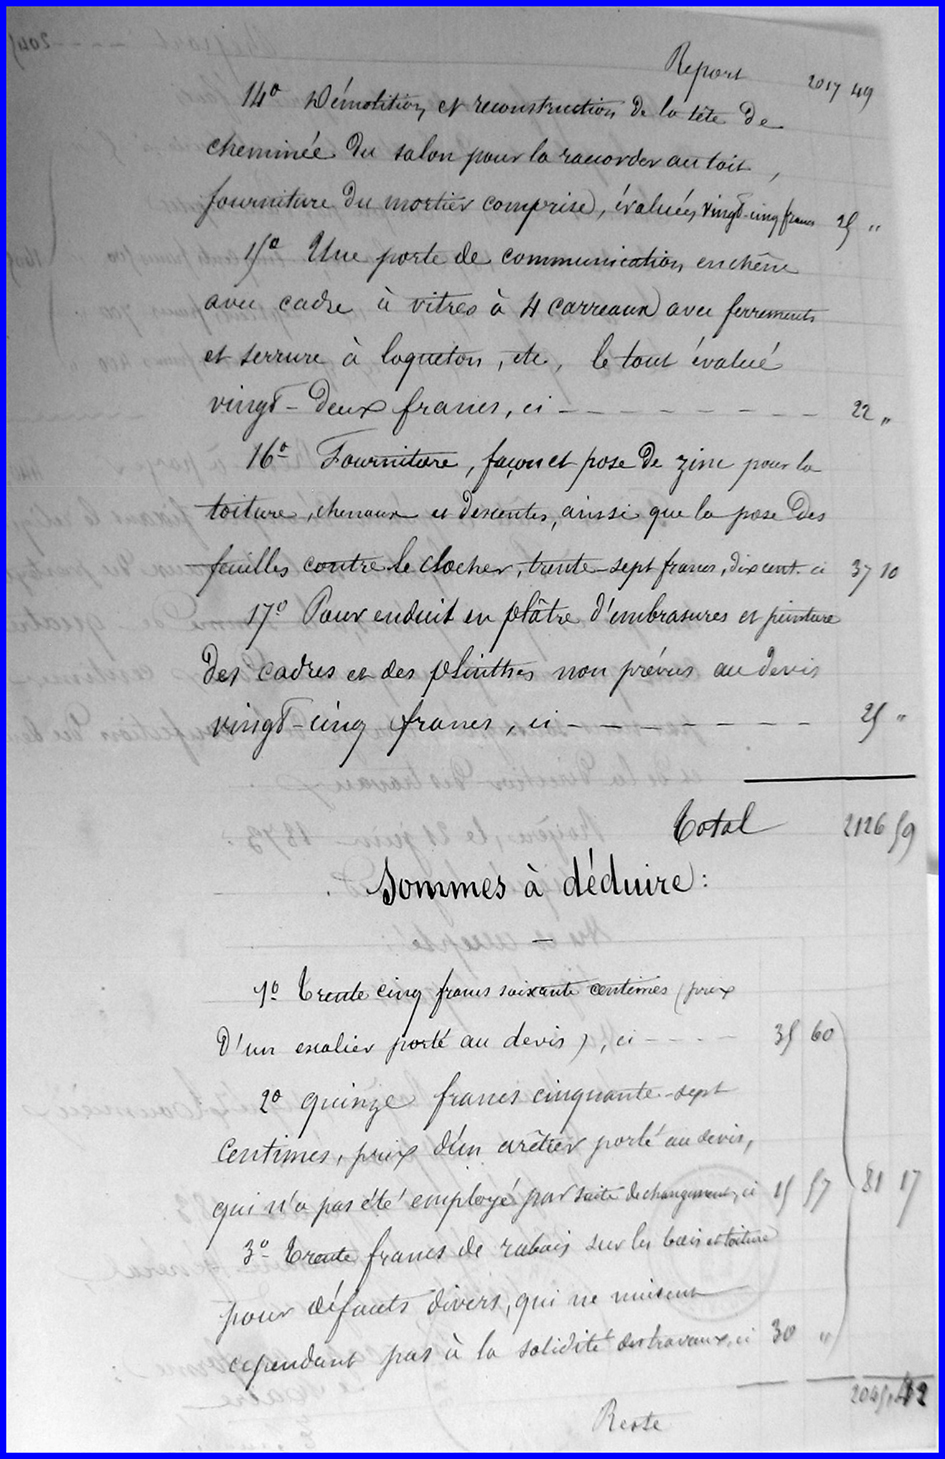 Report 2017 49
14° Démolition et reconstruction de la tête de
cheminée du salon pour la raccorder au toit,
fourniture du mortier comprise, évaluées vingt-cinq francs 25 "
15° Une porte de communication en chêne
avec cadre à vitres à 4 carreaux avec ferrements
et serrure à loqueton, etc, le tout évalué
vingt-deux francs, ci - - - - - - - - 22 "
16° Fourniture, façon et pose de zinc pour la
toiture, chenaux et descentes, ainsi que la pose des
feuilles contre le clocher, trente-sept francs, dix cent. ci 37 10
17° Pour enduit en plâtre d'embrasures et peinture
des cadres et des plinthes non prévus au devis
vingt-cinq francs, ci - - - - - - - - 25 "
Total 2126 59
Sommes à déduire:
1° Trente cinq francs soixante centimes (prix
d'un escalier porté au devis), ci - - - - 35 60
2° quinze francs cinquante-sept
centimes, prix d'un arêtier porté au devis,
qui n'a pas été employé par suite de changement, ci 15 57 81 17
3° Trente francs de rabais sur les bois et toiture
pour défauts divers, qui ne nuisent
cependant pas à la solidité des travaux, ci 30 "
Reste 2045,42